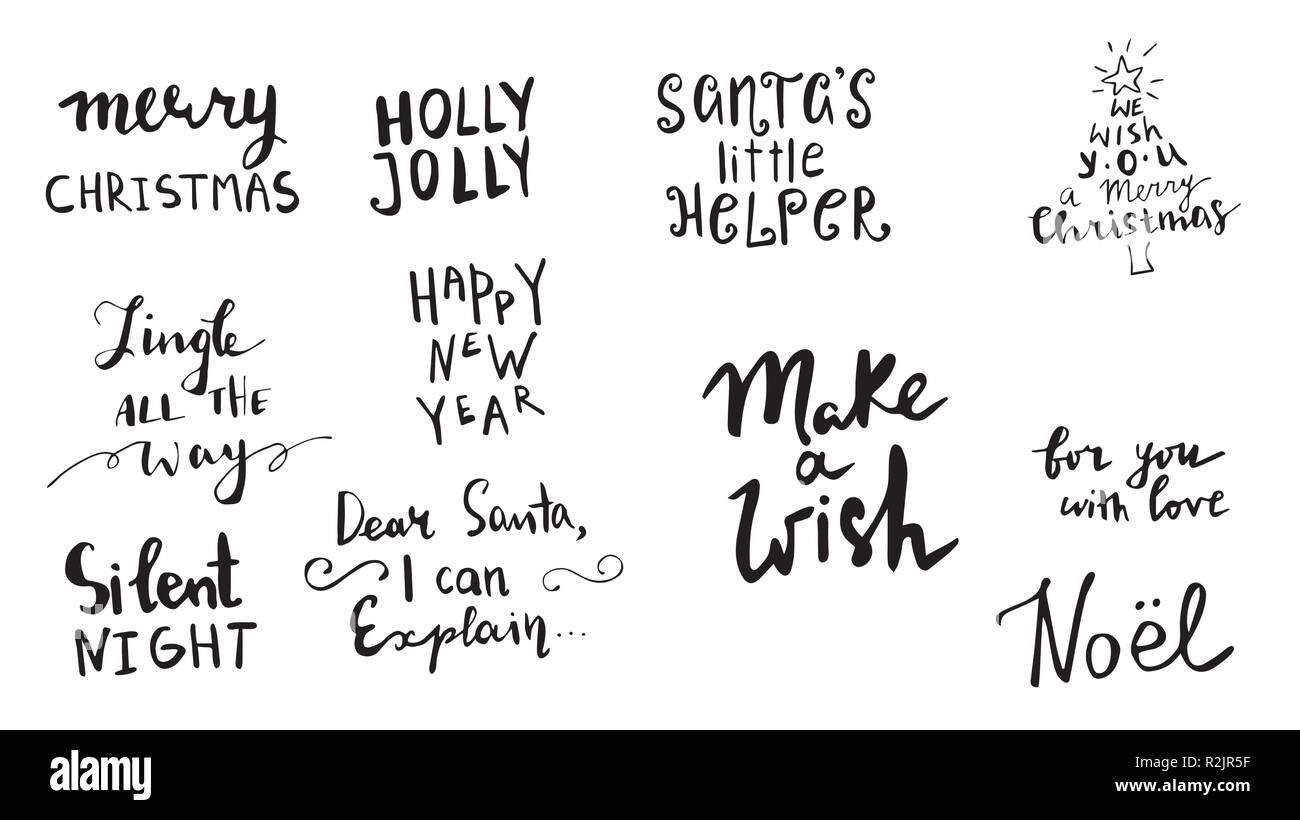 merry
CHRISTMAS
HOLLY
JOLLY
SANTA'S
little
HELPER
WE
wish
y.o.u
a merry
Christmas
Jingle
ALL THE
way
HAPPY
NEW
YEAR
Make
a
wish
for you
with love
Silent
NIGHT
Dear Santa,
I can
Explain...
Noël
alamy
Image ID: R2JR5F
www.alamy.com